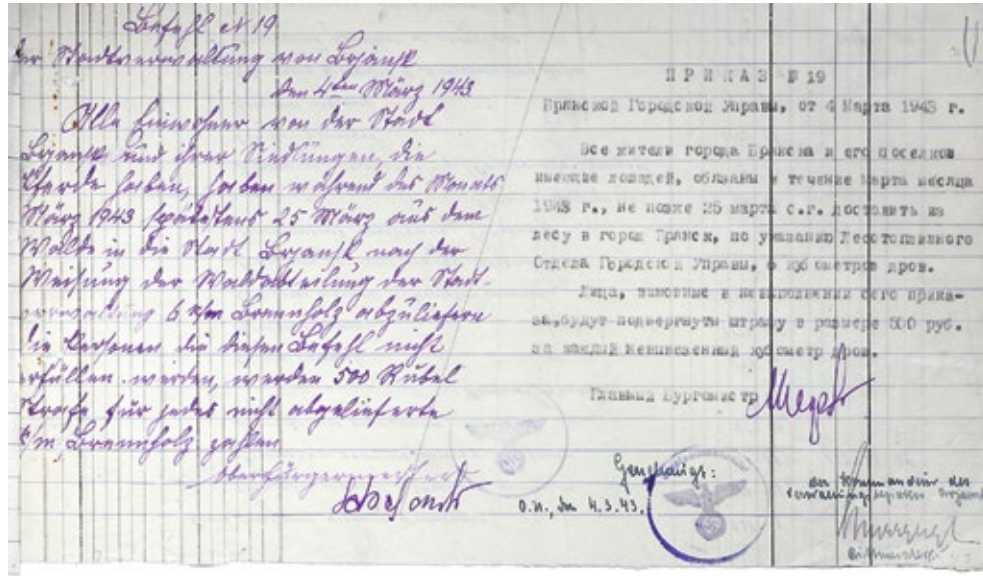 Befehl № 19
der Stadtverwaltung von Brjansk
den 4ten März 1943.
Alle Einwohner von der Stadt
Brjansk und ihrer Siedlungen, die
Pferde haben, haben während des Monats
März 1943 spätestens 25 März aus dem
Walde in die Stadt Brjansk nach der
Weisung der Waldabteilung der Stadt-
verwaltung 6 Brennholz abzuliefern
die Personen die diesen Befehl nicht
erfüllen werden, werden 500 Rubel
Strafe für jedes nicht abgelieferte
Brennholz zahlen
Oberbürgermeister
ПРИКАЗ № 19
Брянской Городской Управы, от 4 Марта 1943 г.
Все жители города Брянска и его поселков
имеющие лошадей, обязаны в течение марта месяца
1943 г., не позже 25 марта с.г. доставить из
лесу в город Брянск, по указанию Лесотопливного
Отдела Городской Управы, 6 кубометров дров.
Лица, виновные в невыполнении сего прика-
за, будут подвергнуты штрафу в размере 500 руб.
за каждый невывезенный кубометр дров.
Главный Бургомистр
Genehmigt:
O.U., den 4.3.43.
der Kommandeur des
Verwaltungsbezirks Brjansk